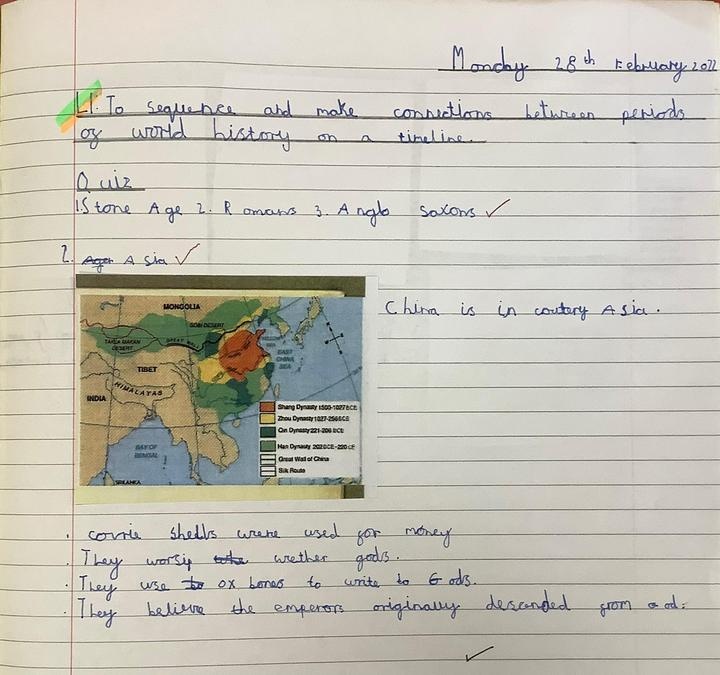 Monday 28th February 2022
LI: To sequence and make connections between periods
of world history on a timeline.
Quiz
1. Stone Age 2. Romans 3. Anglo Saxons ✓
2. Asia ✓
China is in coutery Asia.
MONGOLIA
GOBI DESERT
TAKLA MAKAN
DESERT
GREAT WALL
YELLOW
SEA
EAST
CHINA
SEA
TIBET
HIMALAYAS
INDIA
BAY OF
BENGAL
SRI LANKA
Shang Dynasty 1500-1027 BCE
Zhou Dynasty 1027-256 BCE
Qin Dynasty 221-206 BCE
Han Dynasty 202 BCE-220 CE
Great Wall of China
Silk Route
. cowrie shells were used for money
. They worsip wether gods.
. They use to ox bones to write to Gods.
. They believe the emperors originally descended from a god.